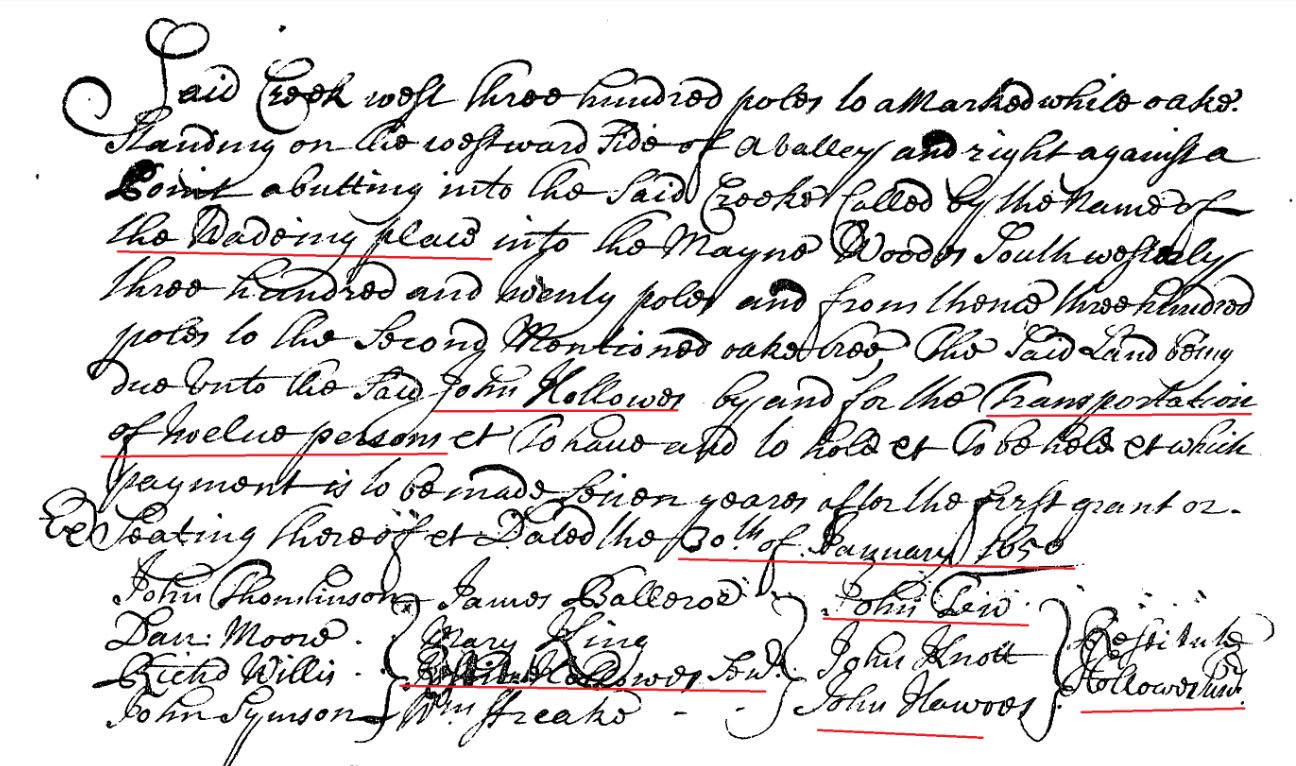 Said Creek west three hundred poles to a Marked white oake.
Standing on the westward side of a valley and right against a
Point abutting into the said Creeke Called by the Name of
the Wadeing place into the Mayne Woods Southwesterly
three hundred and twenty poles and from thence three hundred
poles to the Second Mentioned oake tree, The Said Land being
due unto the said John Hollowes by and for the Transportation
of twelve persons et To have and to hold et To be held et which
payment is to be made seven yeares after the first grant or
Seating thereof et Dated the 30th of January 1650
John Thomlinson James Balleroe John Lew
Dan: Moore Mary King John Knott Restitute
Richd Willis Hollowes Sen. John Hawoes Hollowes
John Symson Wm Freake